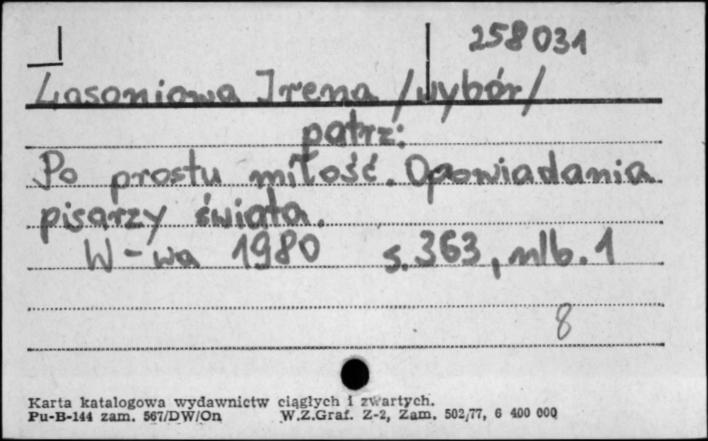 258031
Lasoniowa Irena /wybór/
patrz:
Po prostu miłość. Opowiadania
pisarzy świata.
W-wa 1980 s. 363, nlb. 1
8
Karta katalogowa wydawnictw ciągłych i zwartych.
Pu-B-144 zam. 567/DW/On W.Z.Graf. Z-2, Zam. 502/77, 6 400 000